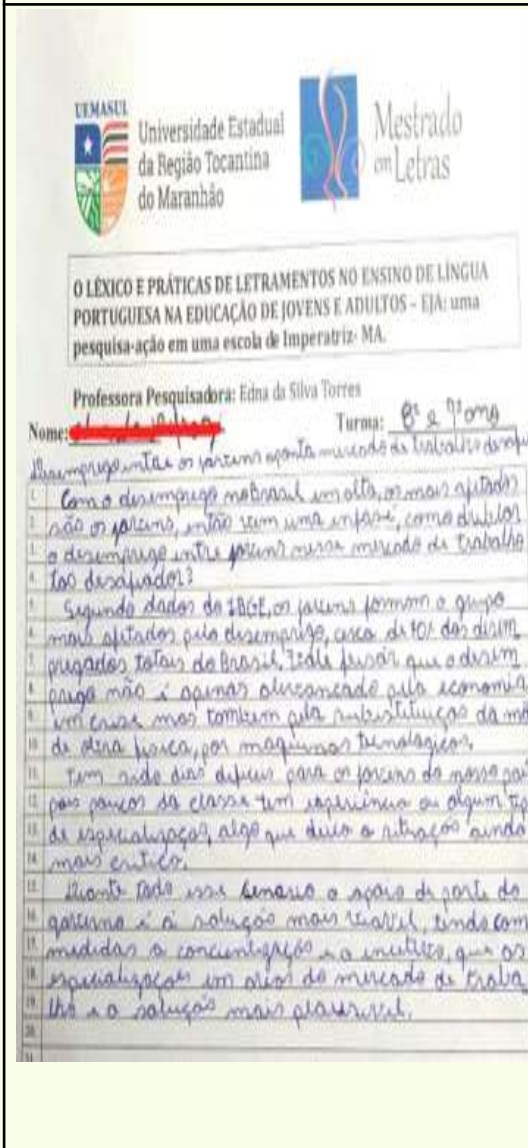 UEMASUL
Universidade Estadual
da Região Tocantina
do Maranhão
Mestrado
em Letras
O LÉXICO E PRÁTICAS DE LETRAMENTOS NO ENSINO DE LÍNGUA
PORTUGUESA NA EDUCAÇÃO DE JOVENS E ADULTOS – EJA: uma
pesquisa-ação em uma escola de Imperatriz- MA.
Professora Pesquisadora: Edna da Silva Torres
Nome: Turma: 8º e 9º ano
Desemprego entre os jovens aponta mercado de trabalho
1. Com o desemprego no Brasil em alta, os mais afetados
2. são os jovens, então vem uma enfase, como
3. o desemprego entre jovens nesse mercado de trabalho
4. tao desafiador?
5. Segundo dados do IBGE, os jovens formam o grupo
6. mais afetados pelo desemprego, cerca de 70% dos desem
7. pregados totais do Brasil, vale que o desem
8. prego não é apenas alavancado pela economia
9. em crise mas tambem pela substituiçao da mã
10. de obra fisica, por maquinas tecnologicas.
11. Tem sido dias dificeis para os jovens do nosso paí
12. pois poucos da classe tem experiencia ou algum tip
13. de especializaçao, algo que deixa a situaçao ainda
14. mais critico.
15. Diante todo esse senario o apoio da parte do
16. governo é a soluçao mais viavel, tendo com
17. medidas a e o incentivo, que as
18. especializaçoes em areas do mercado de traba
19. lho e a soluçao mais
20.